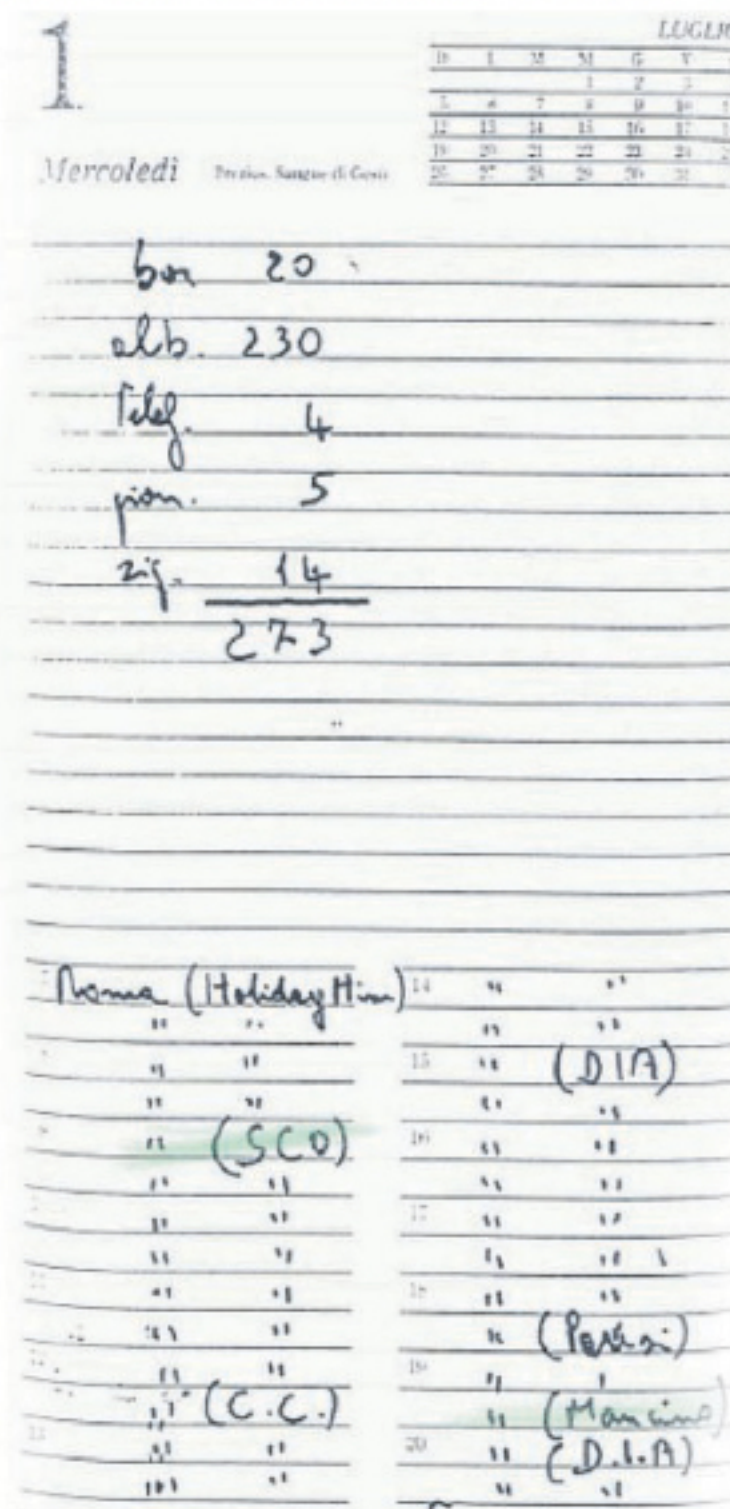 1
LUGLIO
D L M M G V
1 2 3
5 6 7 8 9 10
12 13 14 15 16 17
19 20 21 22 23 24
26 27 28 29 30 31
Mercoledì Prezios. Sangue di Gesù
bar 20
alb. 230
Telef. 4
gior. 5
zig. 14
273
Roma (Holiday Hinn)
" "
" "
" "
" (SCO)
" "
" "
" "
" "
" "
" "
" (C.C.)
" "
" "
14 " "
" "
15 " (DIA)
" "
16 " "
" "
17 " "
" "
18 " "
" (Parisi)
19 " "
" (Mancino)
20 " (D.I.A)
" "